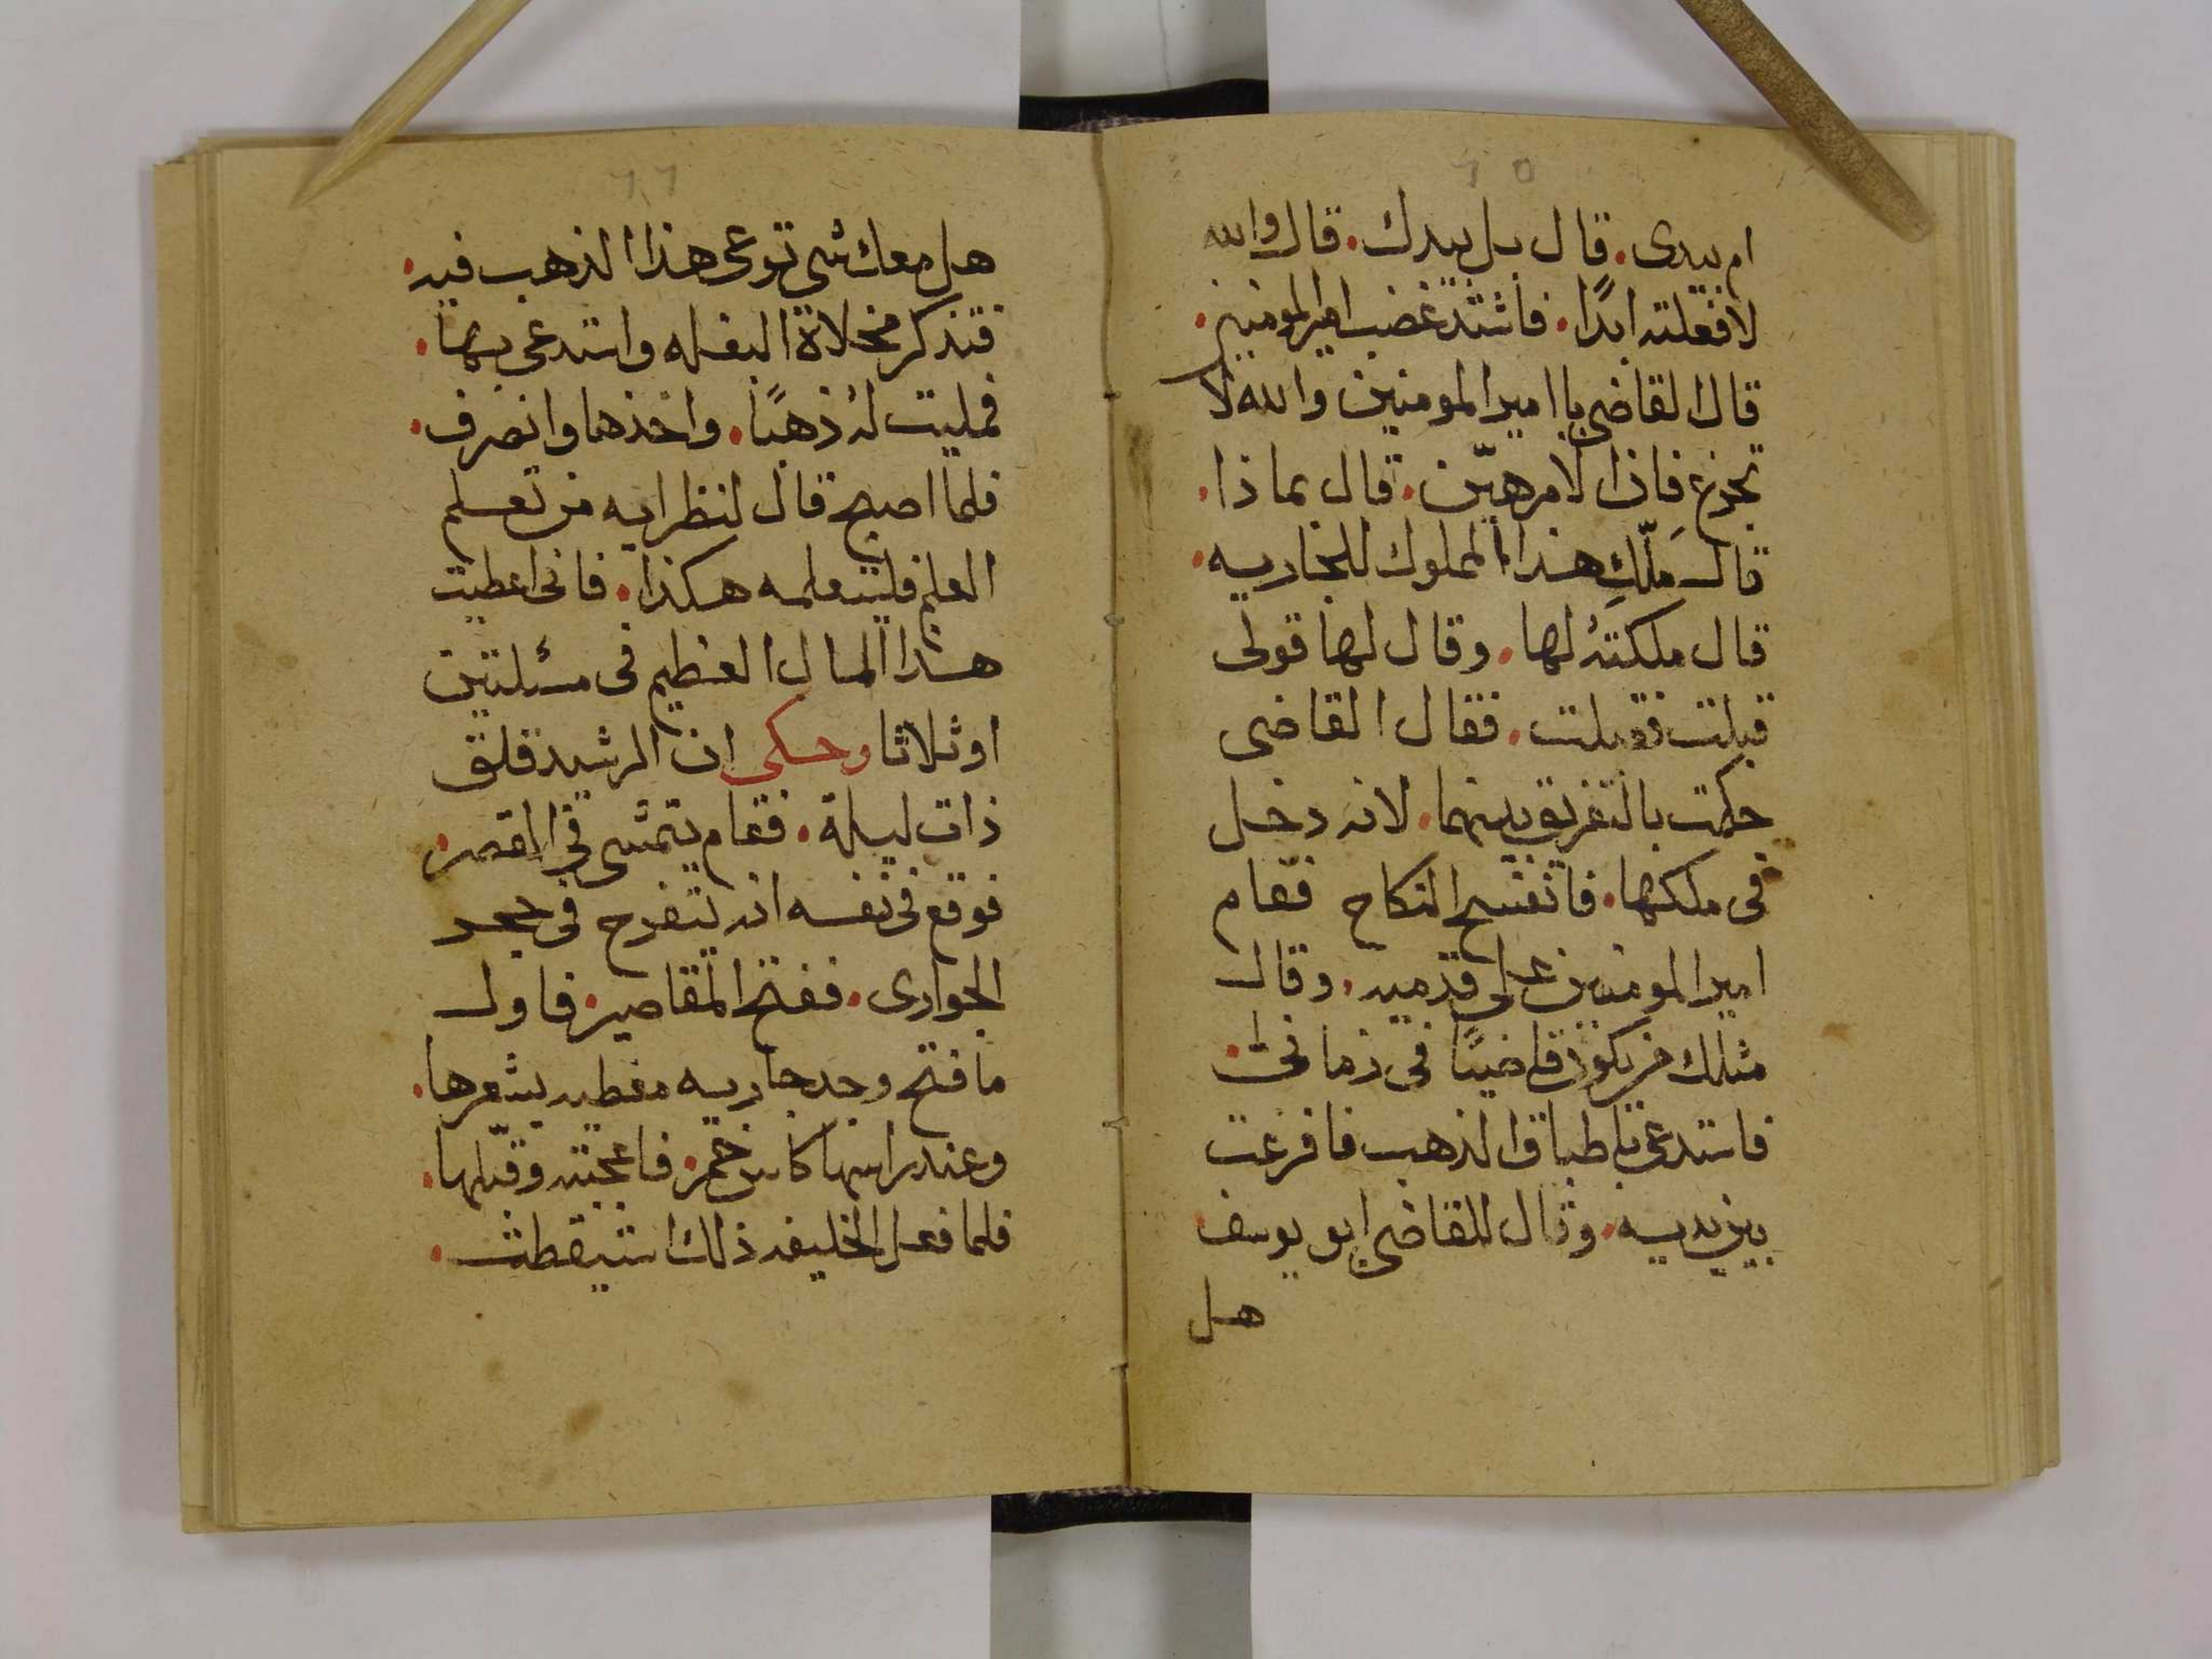 ٦٥
ام بيدى. قال بل بيدك. قال والله
لافعلته ابدًا. فاشتد غضب امير المومنين.
قال القاضى يا امير المومنين والله لا
تجزع فان الامر هيّن. قال بماذا.
قال مَلّكِ هذا المملوك للجاريه.
قال ملكتهُ لها. وقال لها قولى
قبلت فقبلت. فقال القاضى
حكمت بالتفريق بينهما. لانه دخل
فى ملكها. فانفسخ النكاح فقام
امير المومنين على قدميه. وقال
مثلك من يكون قاضيًا فى زمانى.
فاستدعى باطباق الذهب فافرغت
بين يديه. وقال للقاضى ابو يوسف
هل
٦٦
هل معك شى توعى هذا الذهب فيه.
فتذكر مخلاة البغله واستدعى بها.
فمليت لهُ ذهبًا. واخذها وانصرف.
فلما اصبح قال لنظرايه من تعلم
العلم فليتعلمه هكذا. فانى اعطيت
هذا المال العظيم فى مسئلتين
او ثلاثا وحكى ان الرشيد قلق
ذات ليلة. فقام يتمشى فى القصر.
فوقع فى نفسه انه يتفرج فى حجر
الجوارى. ففتح المقاصير. فاول
ما فتح وجد جاريه مغطيه بشعرها.
وعند راسها كاس خمر. فاعجبته وقبّلها.
فلما فعل الخليفه ذلك استيقظت.